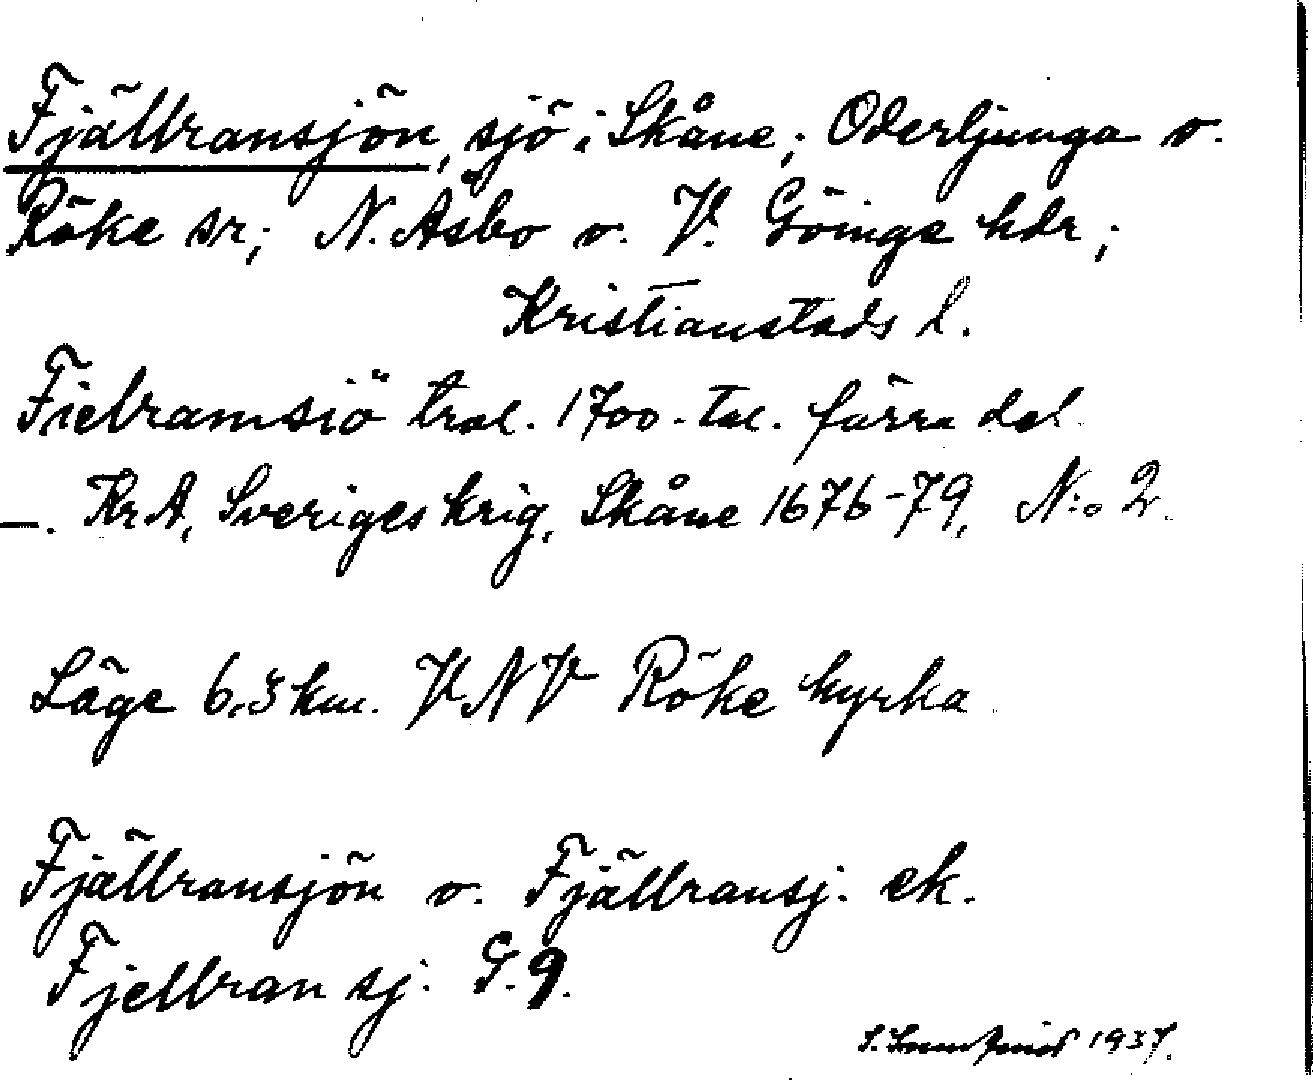 Fjällransjön, sjö i Skåne; Oderljunga o.
Röke sr; N. Åsbo o. V. Göinge hdr;
Kristianstads l.
Fielramsiö trol. 1700-tal. förra del.
—. KrA, Sveriges krig, Skåne 1676-79, N:o 2.
Läge 6.3 km. VNV Röke kyrka
Fjällransjön o. Fjällransj. ek.
Fjellransj. G. 9.
1937.